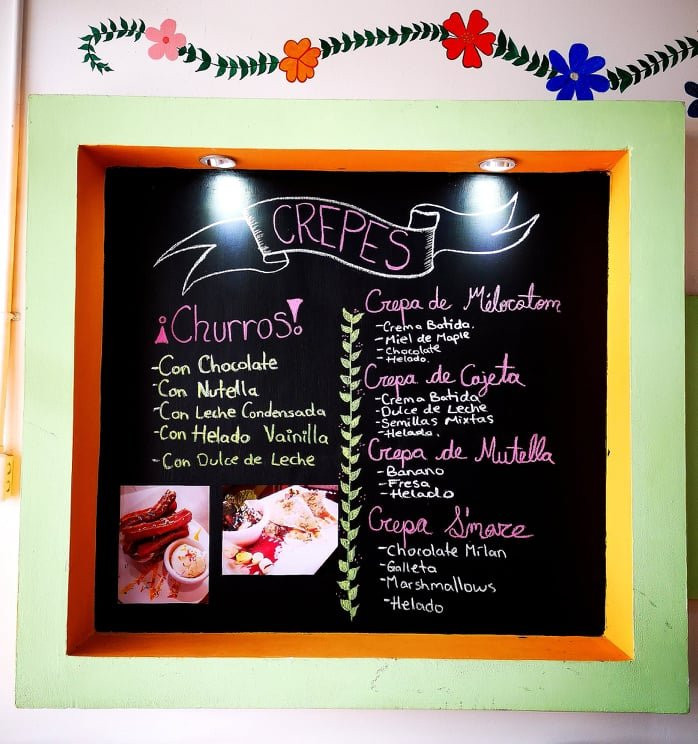 CREPES
¡Churros!
-Con Chocolate
-Con Nutella
-Con Leche Condensada
-Con Helado Vainilla
-Con Dulce de Leche
Crepa de Mélocotom
-Crema Batida.
-Miel de Maple
-Chocolate
-Helado.
Crepa de Cajeta
-Crema Batida
-Dulce de Leche
-Semillas Mixtas
-Helado.
Crepa de Nutella
-Banano
-Fresa
-Helado
Crepa S'more
-Chocolate Milan
-Galleta
-Marshmallows
-Helado